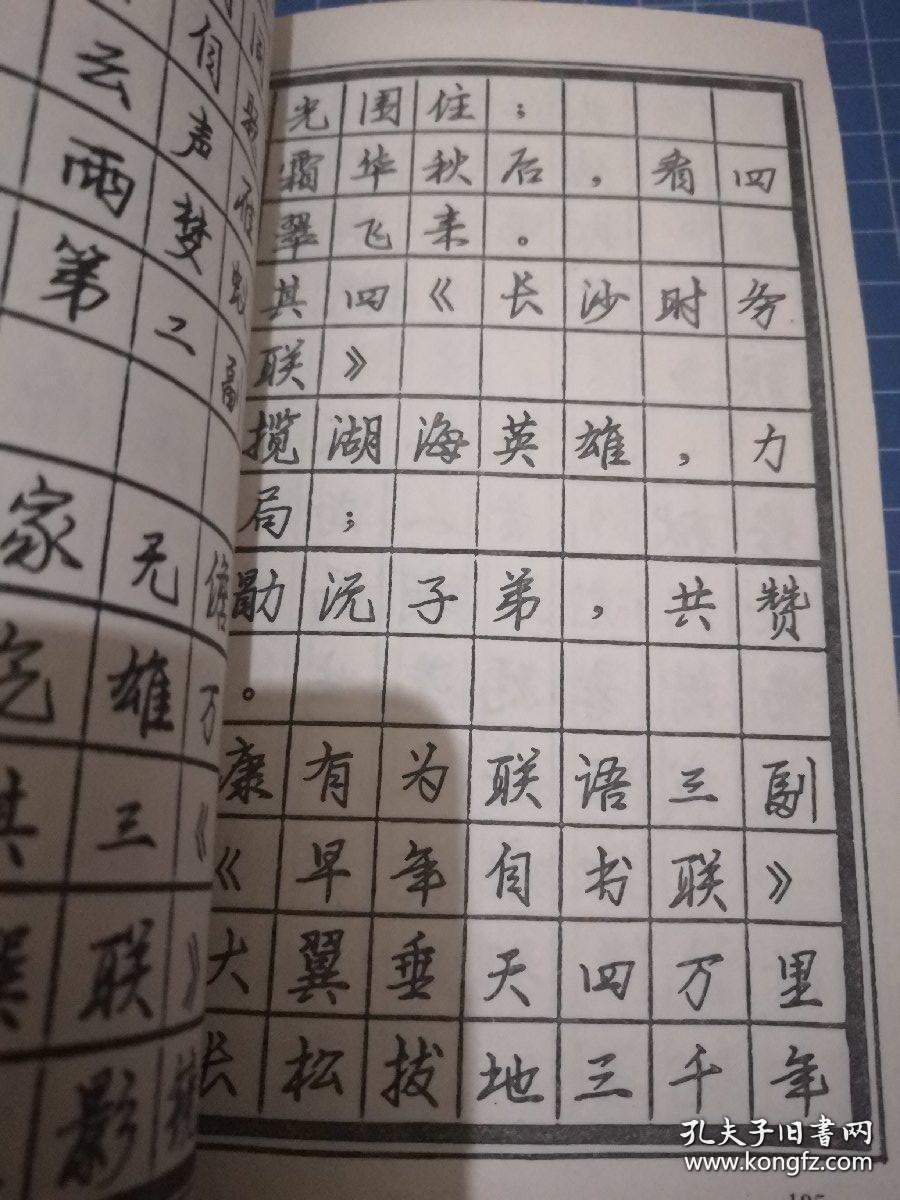 光围住；
霜华秋后，看四
翠飞来。
其四《长沙时务
联》
揽湖海英雄，力
局；
勖沅子弟，共赞
。
康有为联语三副
《早年自书联》
大翼垂天四万里
长松拔地三千年
云
自声
雨梦
第二
家无
雄万
三《
联》
影
孔夫子旧书网
www.kongfz.com